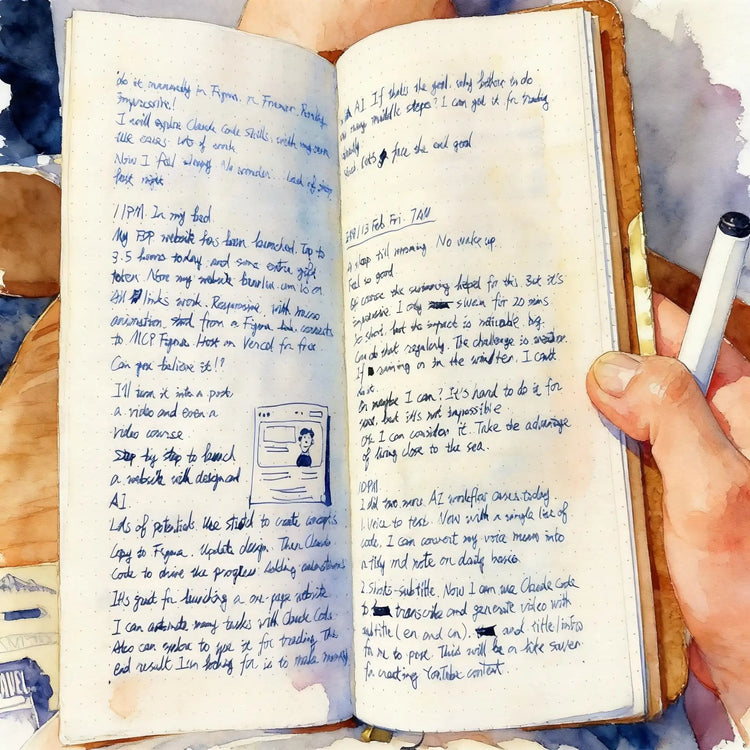 do it manually in Figma, or Framer. Really
impressive!
I will explore Claude Code Skills, with my own
use cases. Lots of work
Now I feel sleepy. No wonder. Lack of sleep
past night
11PM. In my bed.
My P3P website has been launched. Top to
3.5 hours today, and some extra gift
token. Now my website is on
All links work. Responsive, with micro
animation. And from a Figma, connects
to MCP Figma. Host on Vercel for free.
Can you believe it!?
I'll turn it into a post,
a video and even a
video course
Step by step to launch
a website with design and
AI.
Lots of potentials. Use to create concepts
Copy to Figma. Update design. Then Claude
Code to drive the progress. Adding animations
It's great for launching a one-page website
I can automate many tasks with Claude Code.
Also can explore to use it for trading. The
end result I'm looking for is to make money
with AI. If that's the goal, why bother to do
middle steps? I can get it for trading
Let's face the end goal
13 Feb Fri. 7AM
A sleep till morning. No wake up.
Feel so good
Of course the swimming helped for this. But it's
impressive. I only swam for 20 mins.
So short, but the impact is noticable. big.
Can do that regularly. The challenge is
If running or in the winter. I can't
do it.
Or maybe I can? It's hard to do it for
but it's not impossible
I can consider it. Take the advantage
of living close to the sea.
10PM.
I did two more AI workflow cases today.
1. Voice to text. Now with a single line of
code, I can convert my voice memo into
a tidy md note on daily basis
2. Shorts-subtitle. Now I can use Claude Code
to transcribe and generate video with
subtitle (en and cn). and title/intro
for me to post. This will be a life saver
for creating YouTube content